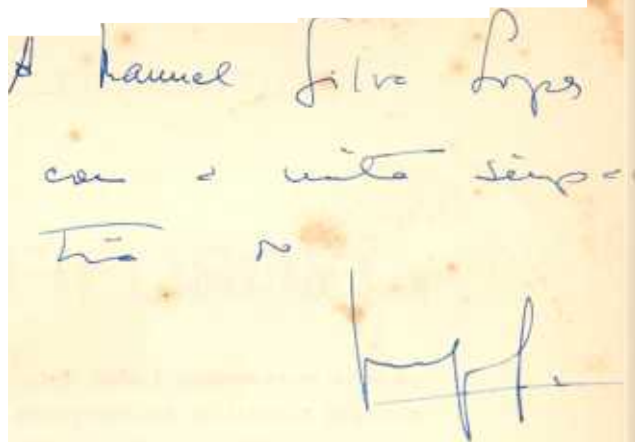 A Manuel Silva Lopes
com a muita simpa-
tia